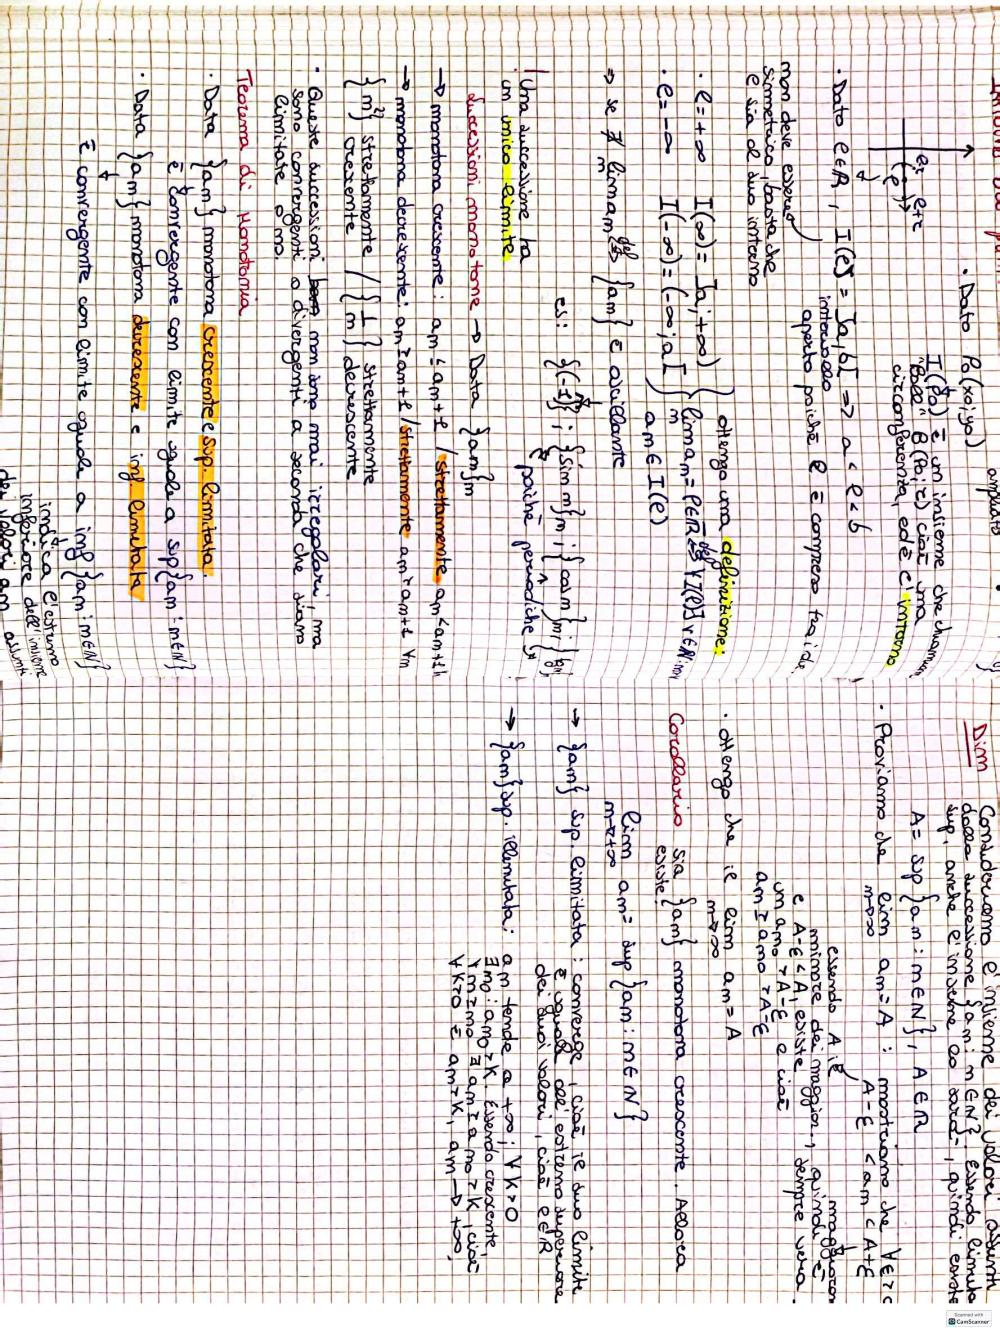 • Dato P₀(x₀;y₀)
I(P₀) è un insieme che chiamiamo
"Balle" B(P₀;r) cioè una
circonferenza, ed è l'intorno
• Dato ℓ∈ℝ, I(ℓ) = ]a,b[ => a < ℓ < b
intervallo
aperto poiché ℓ è compreso tra i due
non deve essere
simmetrico, basta che
ℓ sia al suo interno
ottengo una definizione:
• ℓ=+∞ I(∞) = ]a;+∞)
• ℓ=-∞ I(-∞)=(-∞;a[
an ∈ I(ℓ)
=> se ∄ lim an def {an} è oscillante
n
es: {(-1)ⁿ}; {sin n}n; {cos n}n;
poiché periodiche
Una successione ha
un unico limite
Successioni monotone → Data {an}n
→ monotona crescente: an ≤ an+1 / strettamente an<an+1
→ monotona decrescente: an ≥ an+1 / strettamente an>an+1 ∀n
{n²} strettamente / {1/n} strettamente
crescente decrescente
• Queste successioni non sono mai irregolari, ma
sono convergenti o divergenti a seconda che siano
limitate o no.
Teorema di Monotonia
• Data {an} monotona crescente e sup. limitata.
è convergente con limite uguale a sup{an : n∈N}
• Data {an} monotona decrescente e inf. limitata
È convergente con limite uguale a inf{an : n∈N}
indica l'estremo
inferiore dell'insieme
dei valori an assunti
Dim Consideriamo l'insieme dei valori assunti
dalla successione {an : n∈N}. Essendo limitata
sup, anche l'insieme lo sarà, quindi esiste
A= sup{an : n∈N}, A∈ℝ
• Proviamo che lim an=A : mostriamo che ∀ε>0
n→∞ A-ε < an < A+ε
essendo A il maggioranti
minore dei maggior., quindi è
e A-ε<A, esiste sempre vera.
un an₀ > A-ε e cioè
an ≥ an₀ > A-ε
• ottengo che il lim an = A
n→∞
Corollario sia {an} monotona crescente. Allora
esiste:
lim an = sup{an : n∈N}
n→+∞
→ {an} sup. limitata : converge, cioè il suo limite
è uguale all'estremo superiore
dei suoi valori, cioè ℓ∈ℝ
→ {an} sup. illimitata: an tende a +∞; ∀K>0
∃n₀ : an₀>K. Essendo crescente,
∀n≥n₀ è an≥an₀>K, cioè
∀K>0 è an>K, an→+∞.
Scanned with
CamScanner